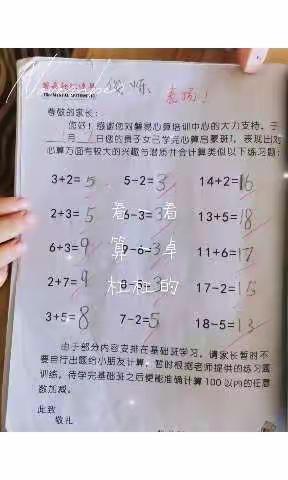 表扬!
尊敬的家长:
您好!感谢您对馨易心算培训中心的大力支持,于
月 日您的贵子女已学完心算启蒙班,表现出对
心算方面有较大的兴趣与潜质并会计算类似以下练习题:
3+2=5 5-2=3 14+2=16
2+3=5 6-3=3 13+5=18
看一看
6+3=9 9-6=3 11+6=17
算一卓
2+7=9 8-5=3 17-2=15
杜杜的
3+5=8 7-2=5 18-5=13
由于部分内容安排在基础班学习,请家长暂时不
要自行出题给小朋友计算,暂时根据老师提供的练习题
训练,待学完基础班之后便能准确计算100以内的任意
数加减。
此致
敬礼